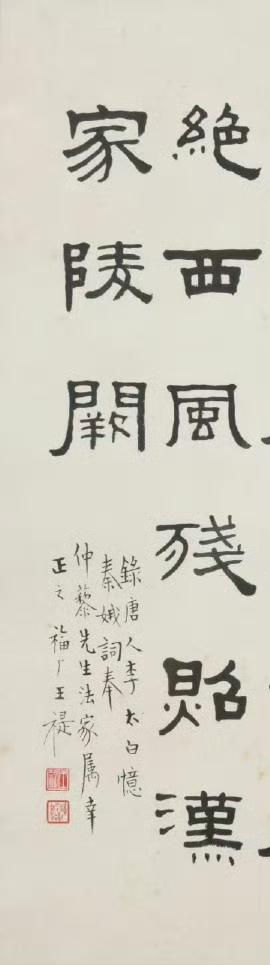 絶西風殘照漢
家陵闕
錄唐人李太白憶
秦娥詞奉
仲藜先生法家属幸
正之福厂王禔